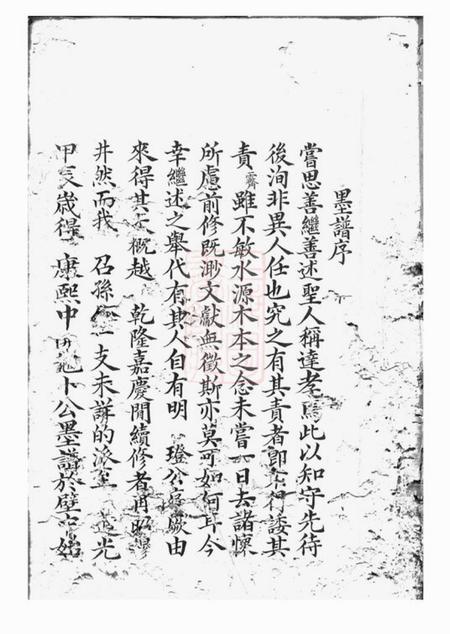 墨譜序
嘗思善繼善述聖人稱達孝焉此以知守先待
後洵非異人任也究之有其責者即行諉其
責霽雖不敏水源木本之念未嘗一日去諸懷
所慮前修既渺文獻無徵斯亦莫可如何耳今
幸繼述之舉代有其人自有明 璒公厥由
來得其大概越 乾隆嘉慶間續修者肖昭穆
井然而我 召孫一支未詳的派至 光
甲辰歲得 康熙中卜公墨譜於壁中始